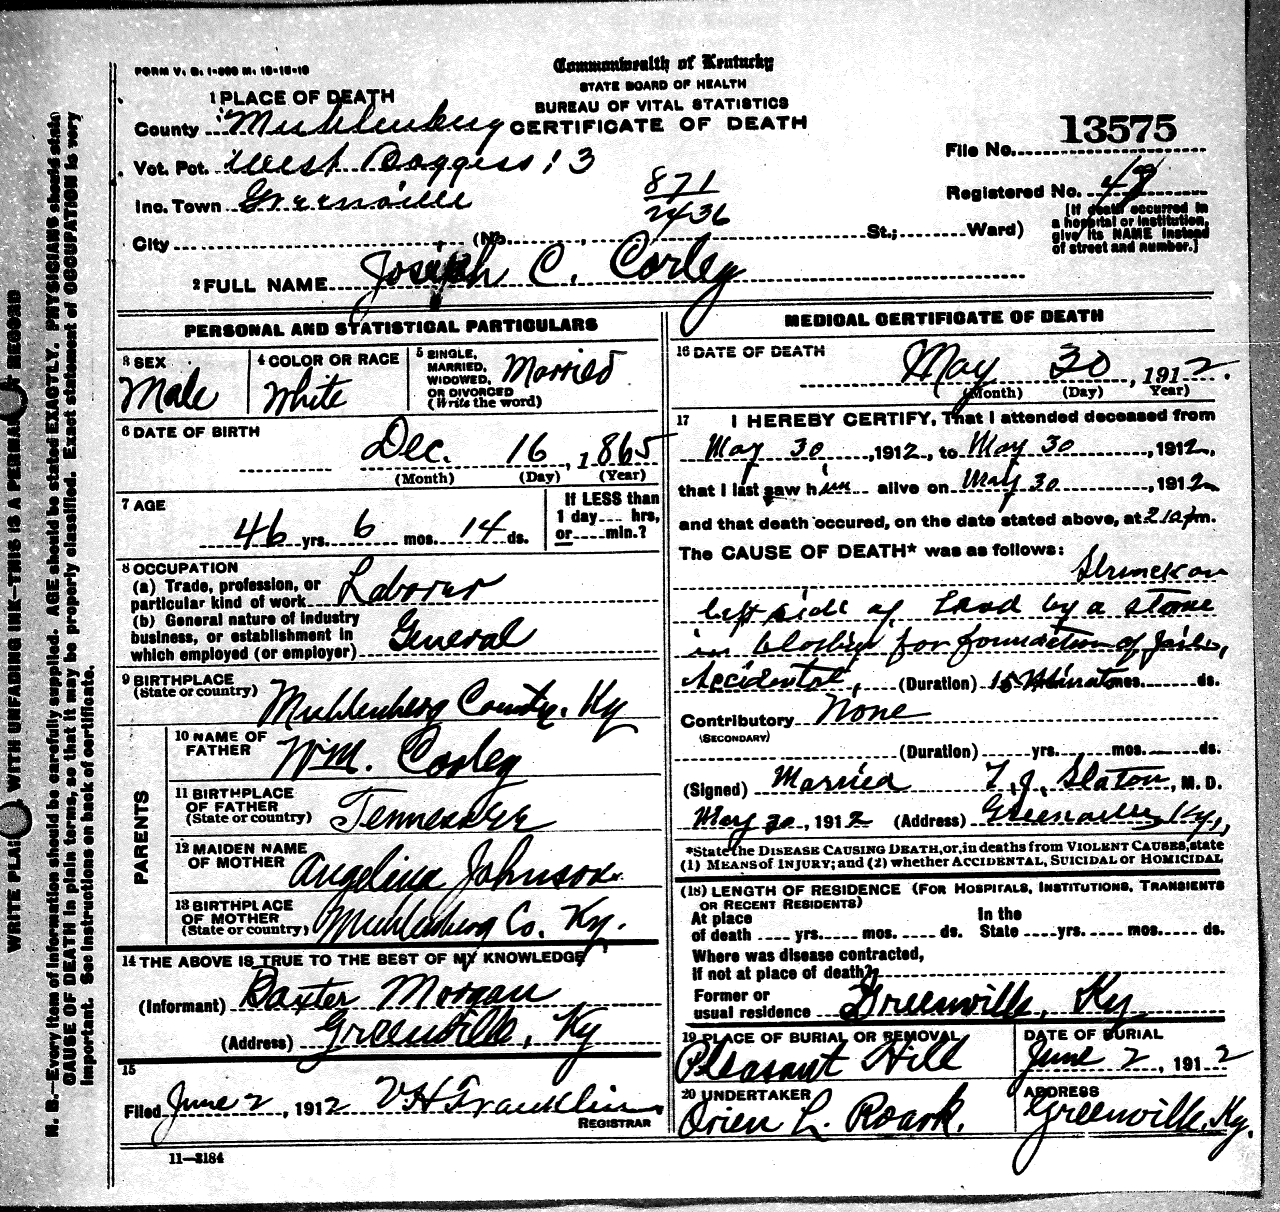 FORM V. S. 1-500 M. 10-10-10
Commonwealth of Kentucky
STATE BOARD OF HEALTH
BUREAU OF VITAL STATISTICS
CERTIFICATE OF DEATH
1 PLACE OF DEATH
County Muhlenberg
Vot. Pct. West Boggess 13
Inc. Town Greenville
871
2436
City (No. St.; Ward)
File No. 13575
Registered No. 48
[If death occurred in a hospital or institution, give its NAME instead of street and number.]
2 FULL NAME Joseph C. Corley
PERSONAL AND STATISTICAL PARTICULARS
3 SEX Male
4 COLOR OR RACE White
5 SINGLE, MARRIED, WIDOWED, OR DIVORCED (Write the word) Married
6 DATE OF BIRTH
Dec. 16, 1865
(Month) (Day) (Year)
7 AGE
46 yrs. 6 mos. 14 ds.
If LESS than 1 day hrs, or min.?
8 OCCUPATION
(a) Trade, profession, or particular kind of work Laborer
(b) General nature of industry business, or establishment in which employed (or employer) General
9 BIRTHPLACE
(State or country) Muhlenberg County, Ky
PARENTS
10 NAME OF FATHER Wm. Corley
11 BIRTHPLACE OF FATHER (State or country) Tennessee
12 MAIDEN NAME OF MOTHER Angelina Johnson
13 BIRTHPLACE OF MOTHER (State or country) Muhlenberg Co. Ky.
14 THE ABOVE IS TRUE TO THE BEST OF MY KNOWLEDGE
(Informant) Baxter Morgan
(Address) Greenville, Ky
15
Filed June 2, 1912 V H Franklin
REGISTRAR
11—3184
MEDICAL CERTIFICATE OF DEATH
16 DATE OF DEATH
May 30, 1912.
(Month) (Day) (Year)
17 I HEREBY CERTIFY, That I attended deceased from
May 30, 1912, to May 30, 1912,
that I last saw him alive on May 30, 1912
and that death occured, on the date stated above, at 2 10 pm.
The CAUSE OF DEATH* was as follows:
Struck on
left side of head by a stone
in blasting for foundation of Jail,
Accidental, (Duration) 15 Minutes mos. ds.
Contributory None
(SECONDARY)
(Duration) yrs. mos. ds.
(Signed) Married T. J. Slaton, M. D.
May 30, 1912 (Address) Greenville Ky,
*State the DISEASE CAUSING DEATH, or, in deaths from VIOLENT CAUSES, state
(1) MEANS OF INJURY; and (2) whether ACCIDENTAL, SUICIDAL OR HOMICIDAL
(18) LENGTH OF RESIDENCE (FOR HOSPITALS, INSTITUTIONS, TRANSIENTS OR RECENT RESIDENTS)
At place of death yrs. mos. ds. In the State yrs. mos. ds.
Where was disease contracted, if not at place of death?
Former or usual residence Greenville, Ky
19 PLACE OF BURIAL OR REMOVAL
Pleasant Hill
DATE OF BURIAL
June 2, 1912
20 UNDERTAKER
Orien L. Roark.
ADDRESS
Greenville, Ky.
WRITE PLAINLY WITH UNFADING INK—THIS IS A PERMANENT RECORD
N. B.—Every item of information should be carefully supplied. AGE should be stated EXACTLY. PHYSICIANS should state
CAUSE OF DEATH in plain terms, so that it may be properly classified. Exact statement of OCCUPATION is very
important. See instructions on back of certificate.